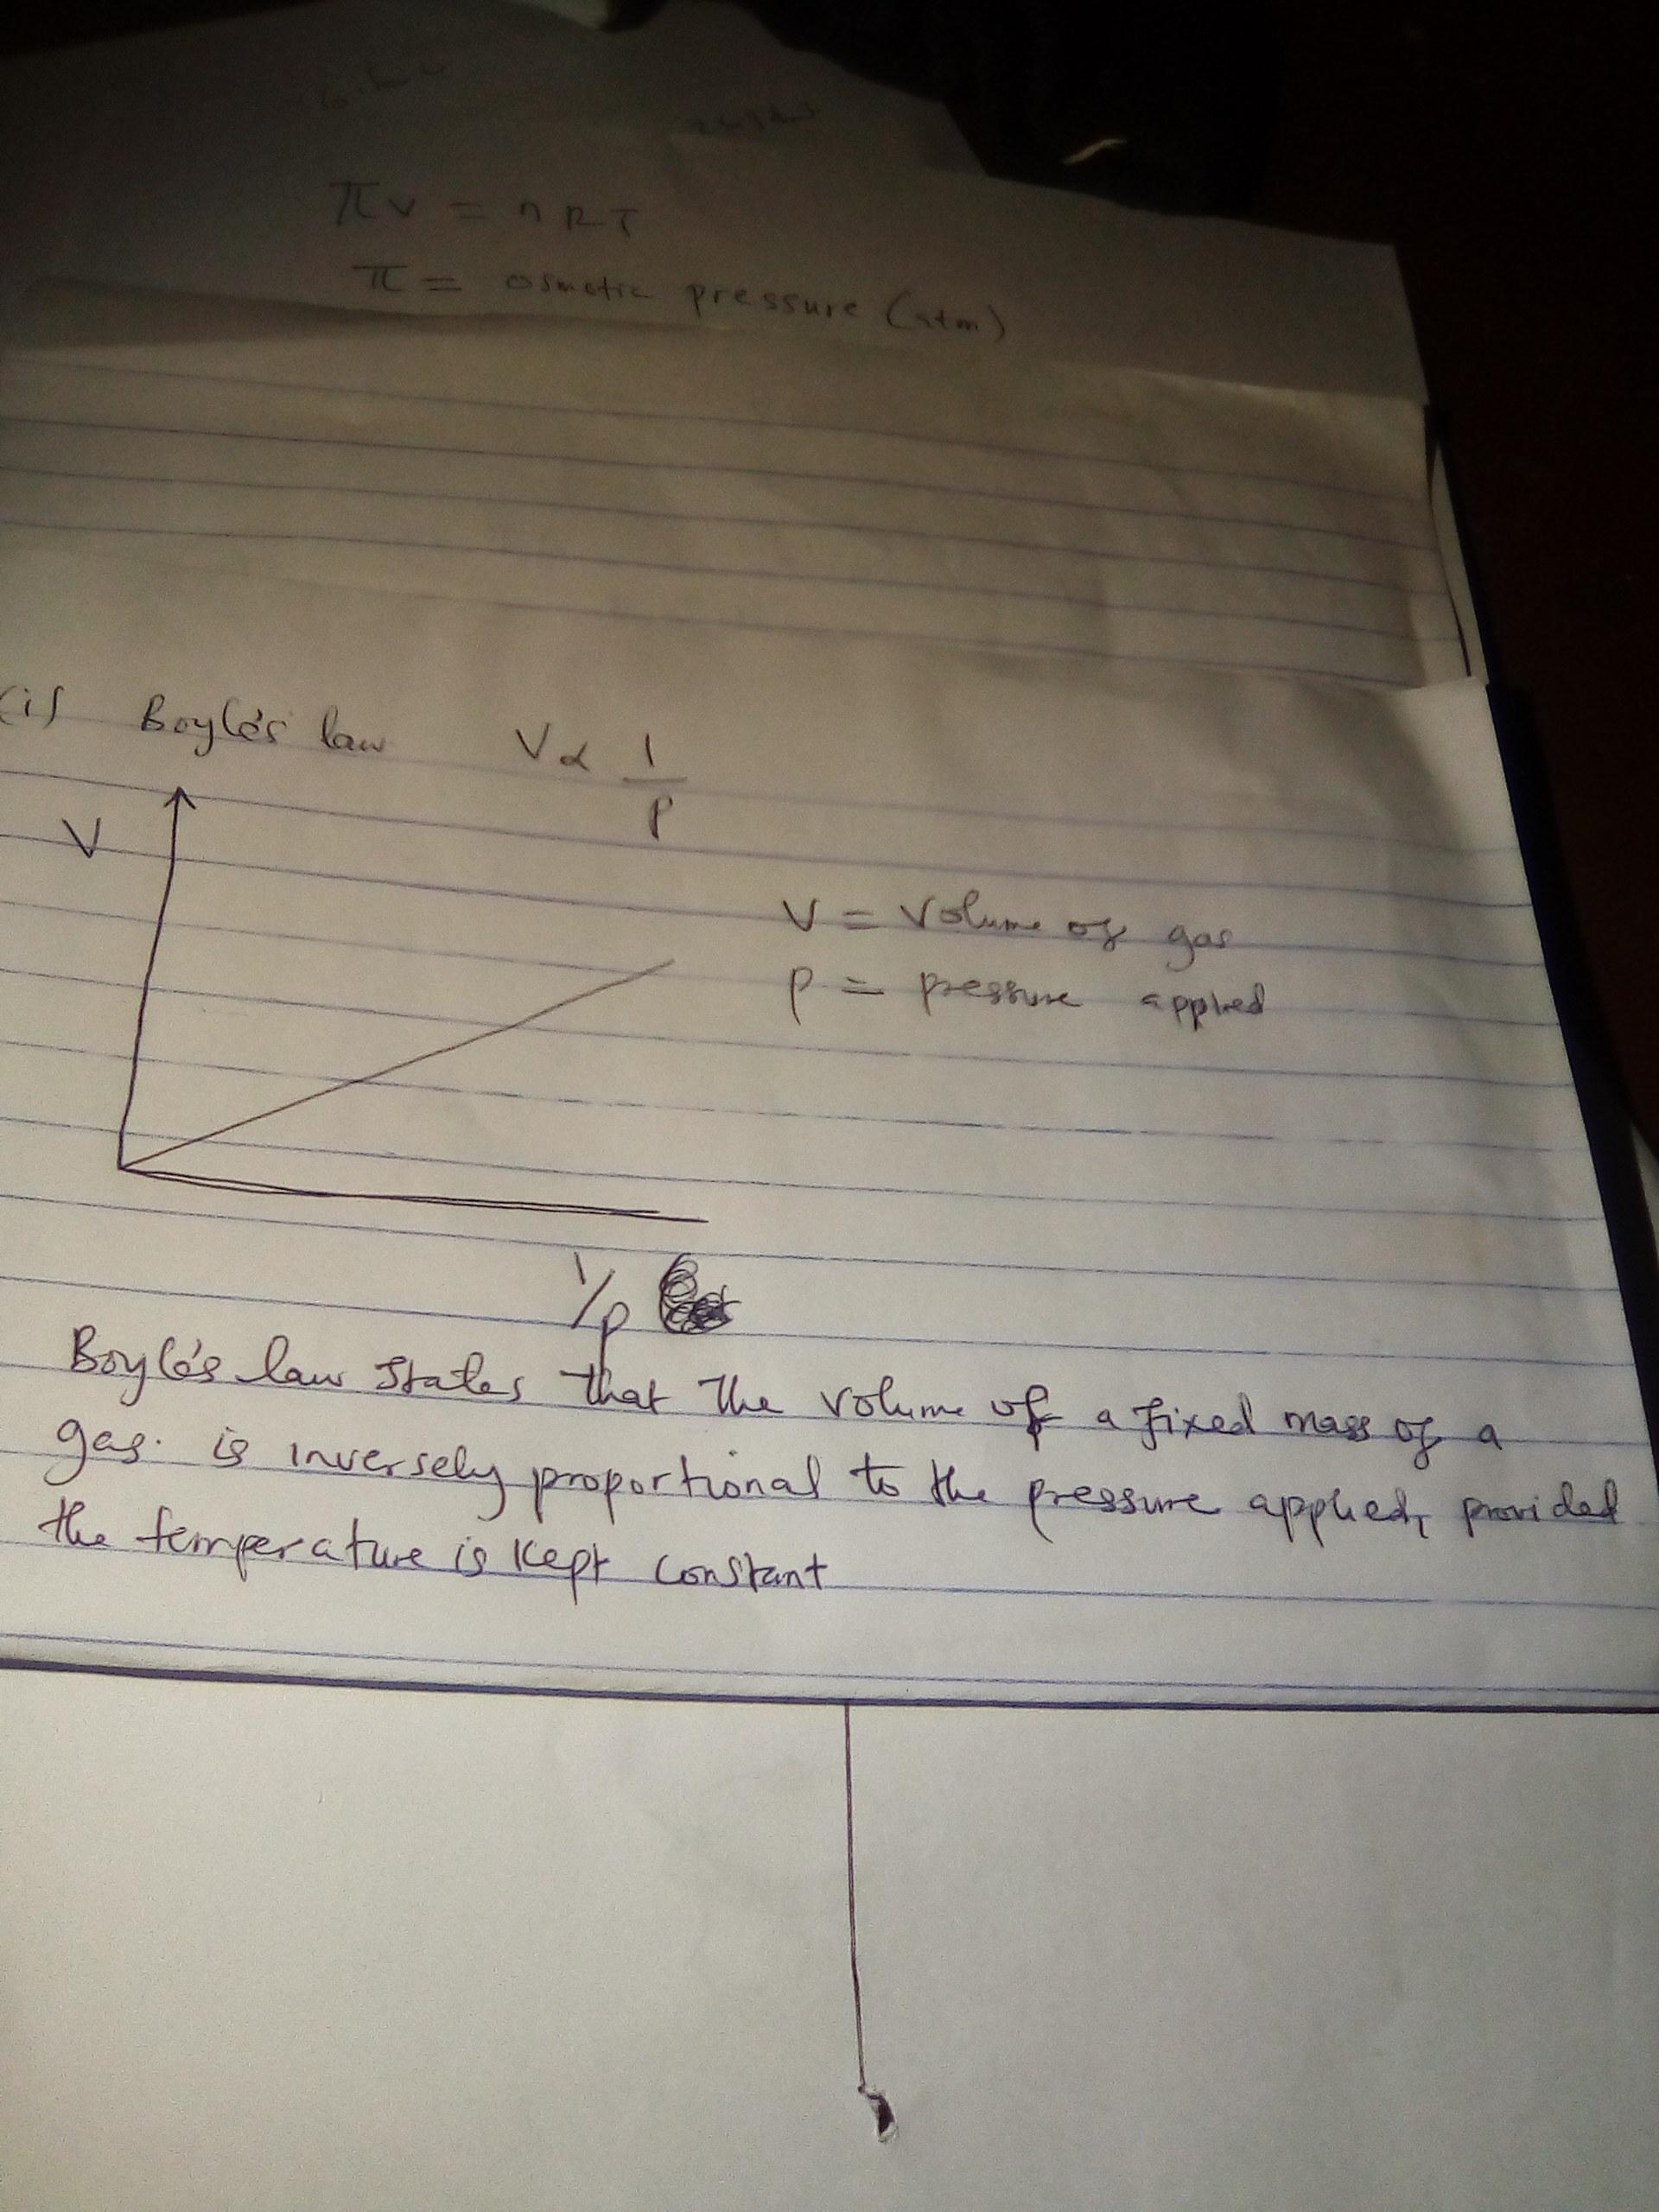 πV = nRT
π = osmotic pressure (atm)
(i) Boyle's law V α 1/P
V
V = Volume of gas
P = pressure applied
1/p
Boyle's law states that the volume of a fixed mass of a
gas. is inversely proportional to the pressure applied, provided
the temperature is kept constant